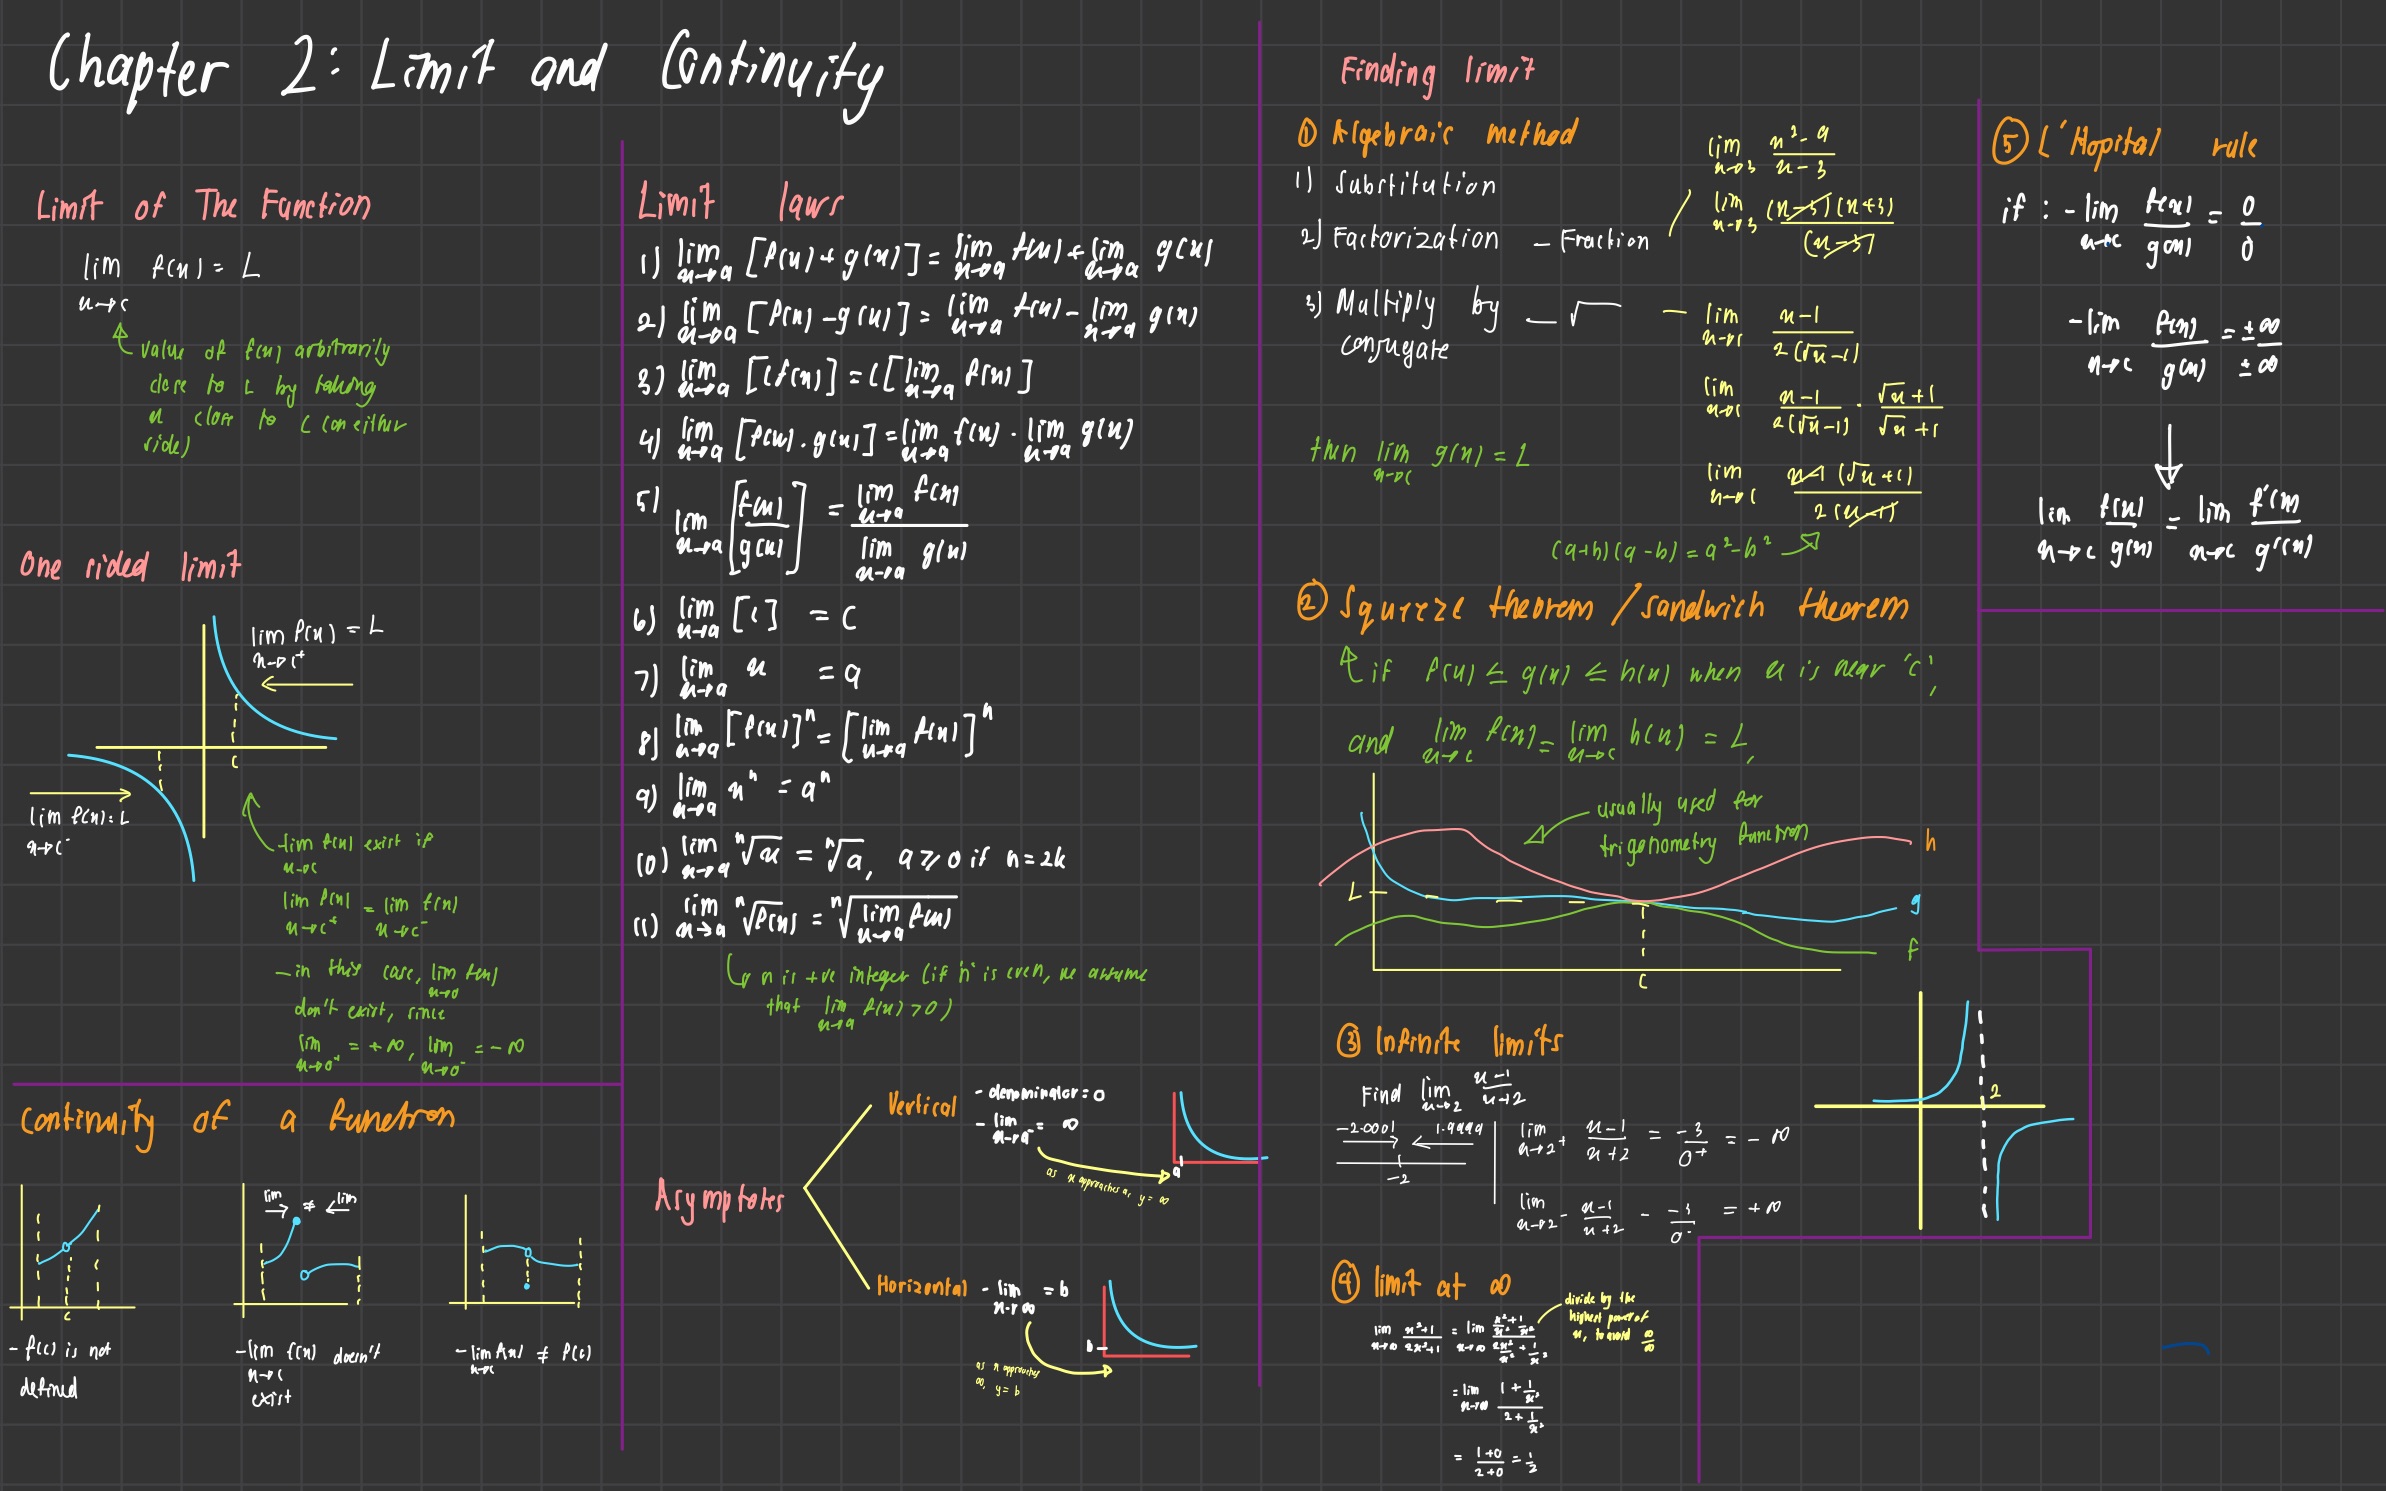 Chapter 2: Limit and Continuity
Limit of The Function
lim f(x) = L
x→c
value of f(x) arbitrarily
close to L by taking
x close to c (on either
side)
One sided limit
lim f(x) = L
x→c⁺
c
lim f(x) = L
x→c⁻
-lim f(x) exist if
x→c
lim f(x) = lim f(x)
x→c⁺ x→c⁻
- in this case, lim f(x)
x→0
don't exist, since
lim = +∞, lim = -∞
x→0⁺ x→0⁻
Continuity of a function
c
- f(c) is not
defined
lim ≠ lim
→ ←
- lim f(x) doesn't
x→c
exist
- lim f(x) ≠ f(c)
x→c
Limit laws
1) lim x→a [f(x) + g(x)] = lim x→a f(x) + lim x→a g(x)
2) lim x→a [f(x) - g(x)] = lim x→a f(x) - lim x→a g(x)
3) lim x→a [cf(x)] = c[lim x→a f(x)]
4) lim x→a [f(x) . g(x)] = lim x→a f(x) · lim x→a g(x)
5) lim x→a [f(x)/g(x)] = lim x→a f(x) / lim x→a g(x)
6) lim x→a [c] = c
7) lim x→a x = a
8) lim x→a [f(x)]ⁿ = [lim x→a f(x)]ⁿ
9) lim x→a xⁿ = aⁿ
10) lim x→a ⁿ√x = ⁿ√a, a ≥ 0 if n = 2k
11) lim x→a ⁿ√f(x) = ⁿ√lim x→a f(x)
n is +ve integer (if 'n' is even, we assume
that lim x→a f(x) > 0)
Asymptotes
Vertical
- denominator = 0
- lim x→a⁻ = ∞
as x approaches a, y = ∞
a
Horizontal
- lim x→∞ = b
as x approaches
∞, y = b
b
Finding limit
① Algebraic method
1) Substitution
2) Factorization - Fraction
lim x→3 x²-9 / x-3
lim x→3 (x-3)(x+3) / (x-3)
3) Multiply by - √
conjugate
lim x→1 x-1 / 2(√x-1)
lim x→1 x-1 / 2(√x-1) · √x+1 / √x+1
lim x→1 x-1 (√x+1) / 2(x-1)
(a+b)(a-b) = a²-b²
then lim x→c g(x) = L
② Squeeze theorem / sandwich theorem
if f(x) ≤ g(x) ≤ h(x) when x is near 'c',
and lim x→c f(x) = lim x→c h(x) = L,
usually used for
trigonometry function
h
L
g
f
c
③ Infinite limits
Find lim x→2 x-1 / x+2
-2.0001 1.9999
-2
lim x→2⁺ x-1 / x+2 = -3 / 0⁺ = -∞
lim x→2⁻ x-1 / x+2 - -3 / 0⁻ = +∞
2
④ limit at ∞
lim x→∞ x²+1 / 2x²+1 = lim x→∞ x²/x² + 1/x² / 2x²/x² + 1/x²
divide by the
highest power of
x, to avoid ∞/∞
= lim x→∞ 1 + 1/x² / 2 + 1/x²
= 1+0 / 2+0 = 1/2
⑤ L'Hopital rule
if : - lim x→c f(x)/g(x) = 0/0
- lim x→c f(x)/g(x) = ±∞/±∞
lim x→c f(x)/g(x) = lim x→c f'(x)/g'(x)